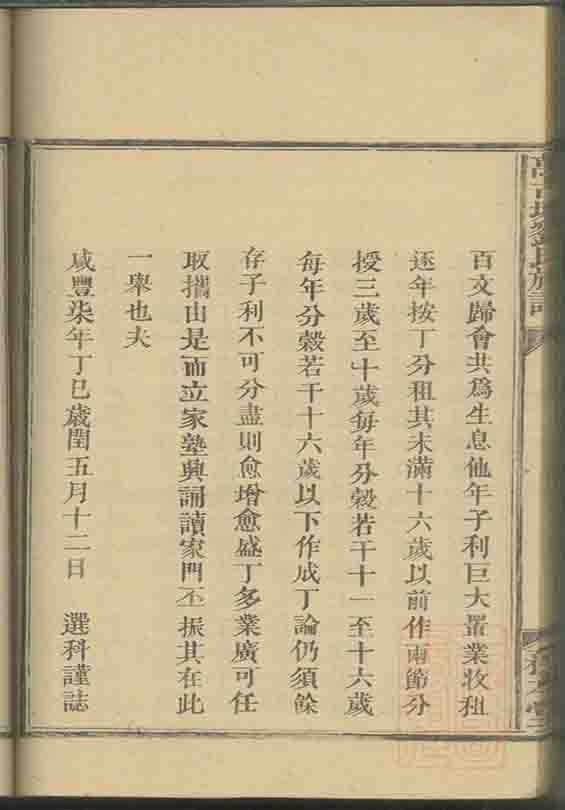 百文歸會共爲生息他年子利巨大置業收租
逐年按丁分租其未滿十六歲以前作兩節分
授三歲至十歲每年分穀若干十一至十六歲
每年分穀若干十六歲以下作成丁論仍須餘
存子利不可分盡則愈增愈盛丁多業廣可任
取攜由是而立家塾興誦讀家門丕振其在此
一舉也夫
咸豐柒年丁巳歲閏五月十二日 選科謹誌